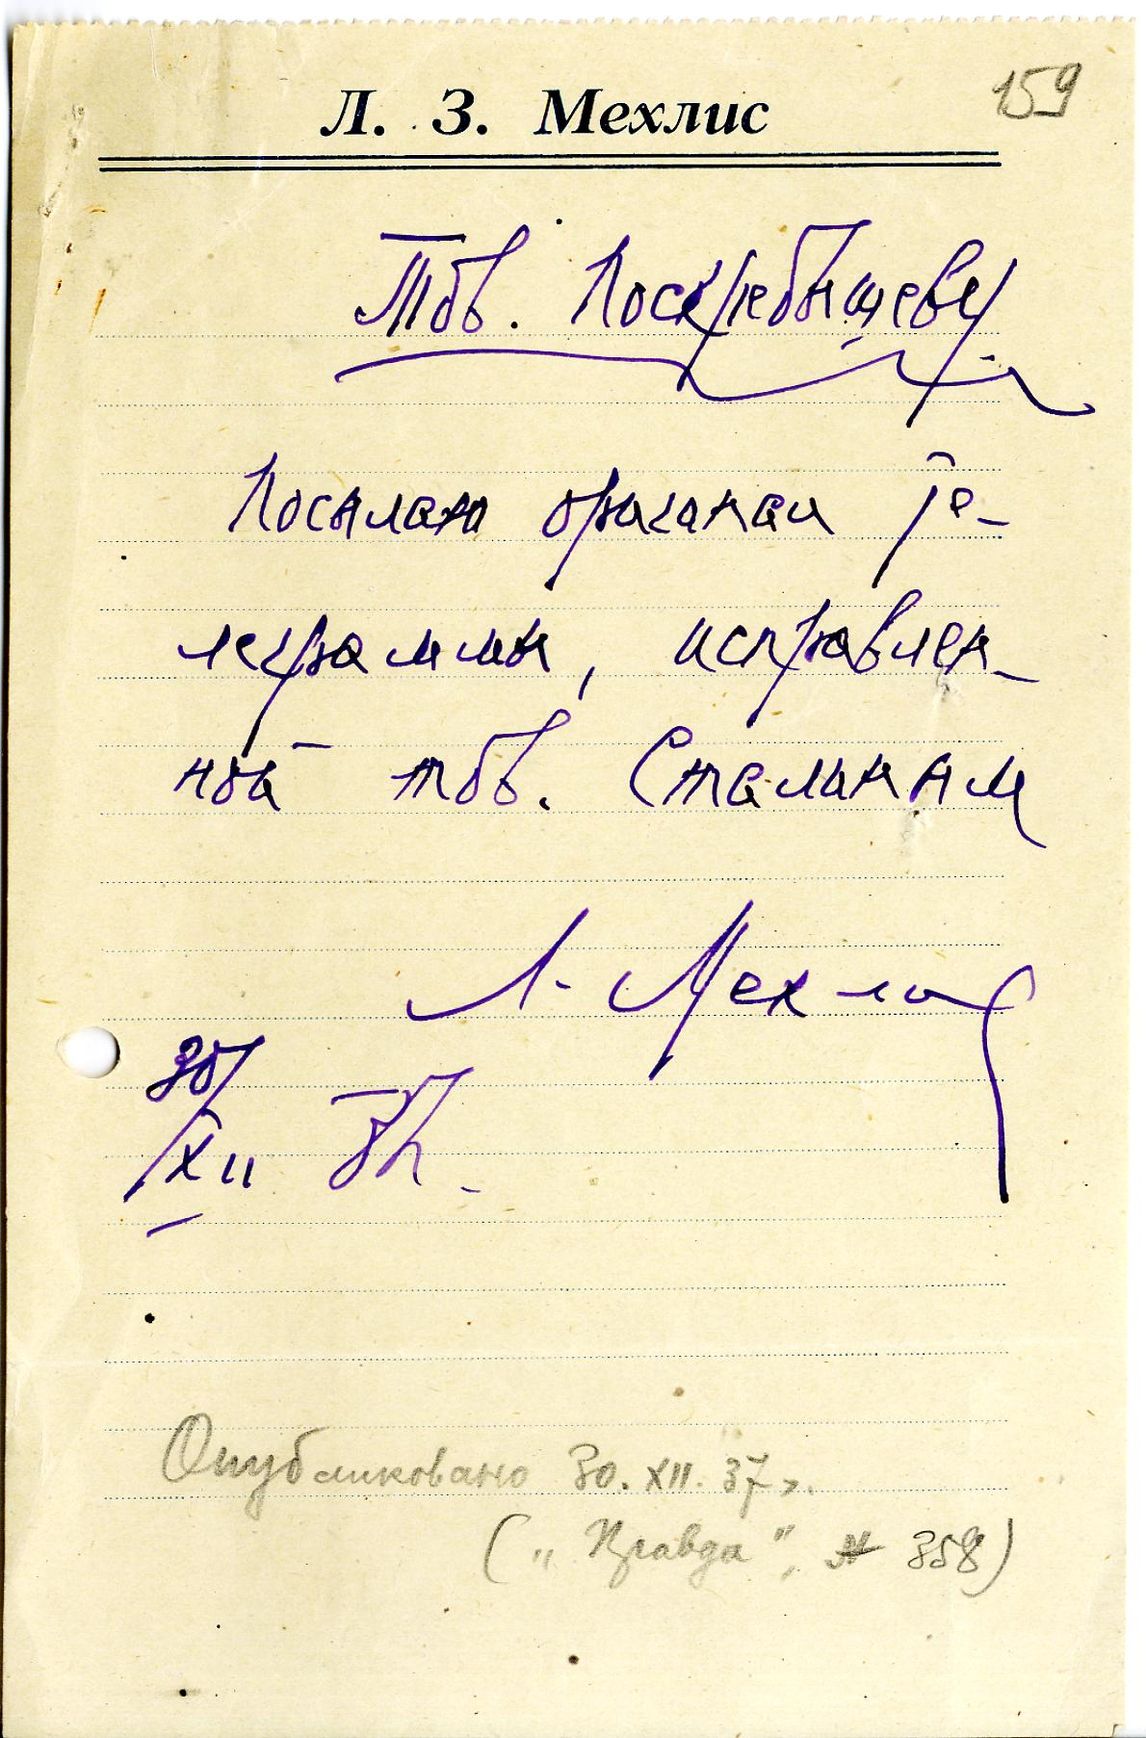 159
Л. З. Мехлис
Тов. Поскребышеву
Посылаю оригинал те-
леграммы, исправлен-
ной тов. Сталиным
Л. Мехлис
30/XII 37.
Опубликовано 30.XII.37г.
(„Правда", № 358)